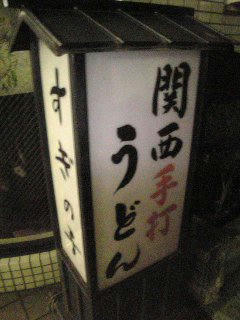 関西手打
うどん
すぎのや